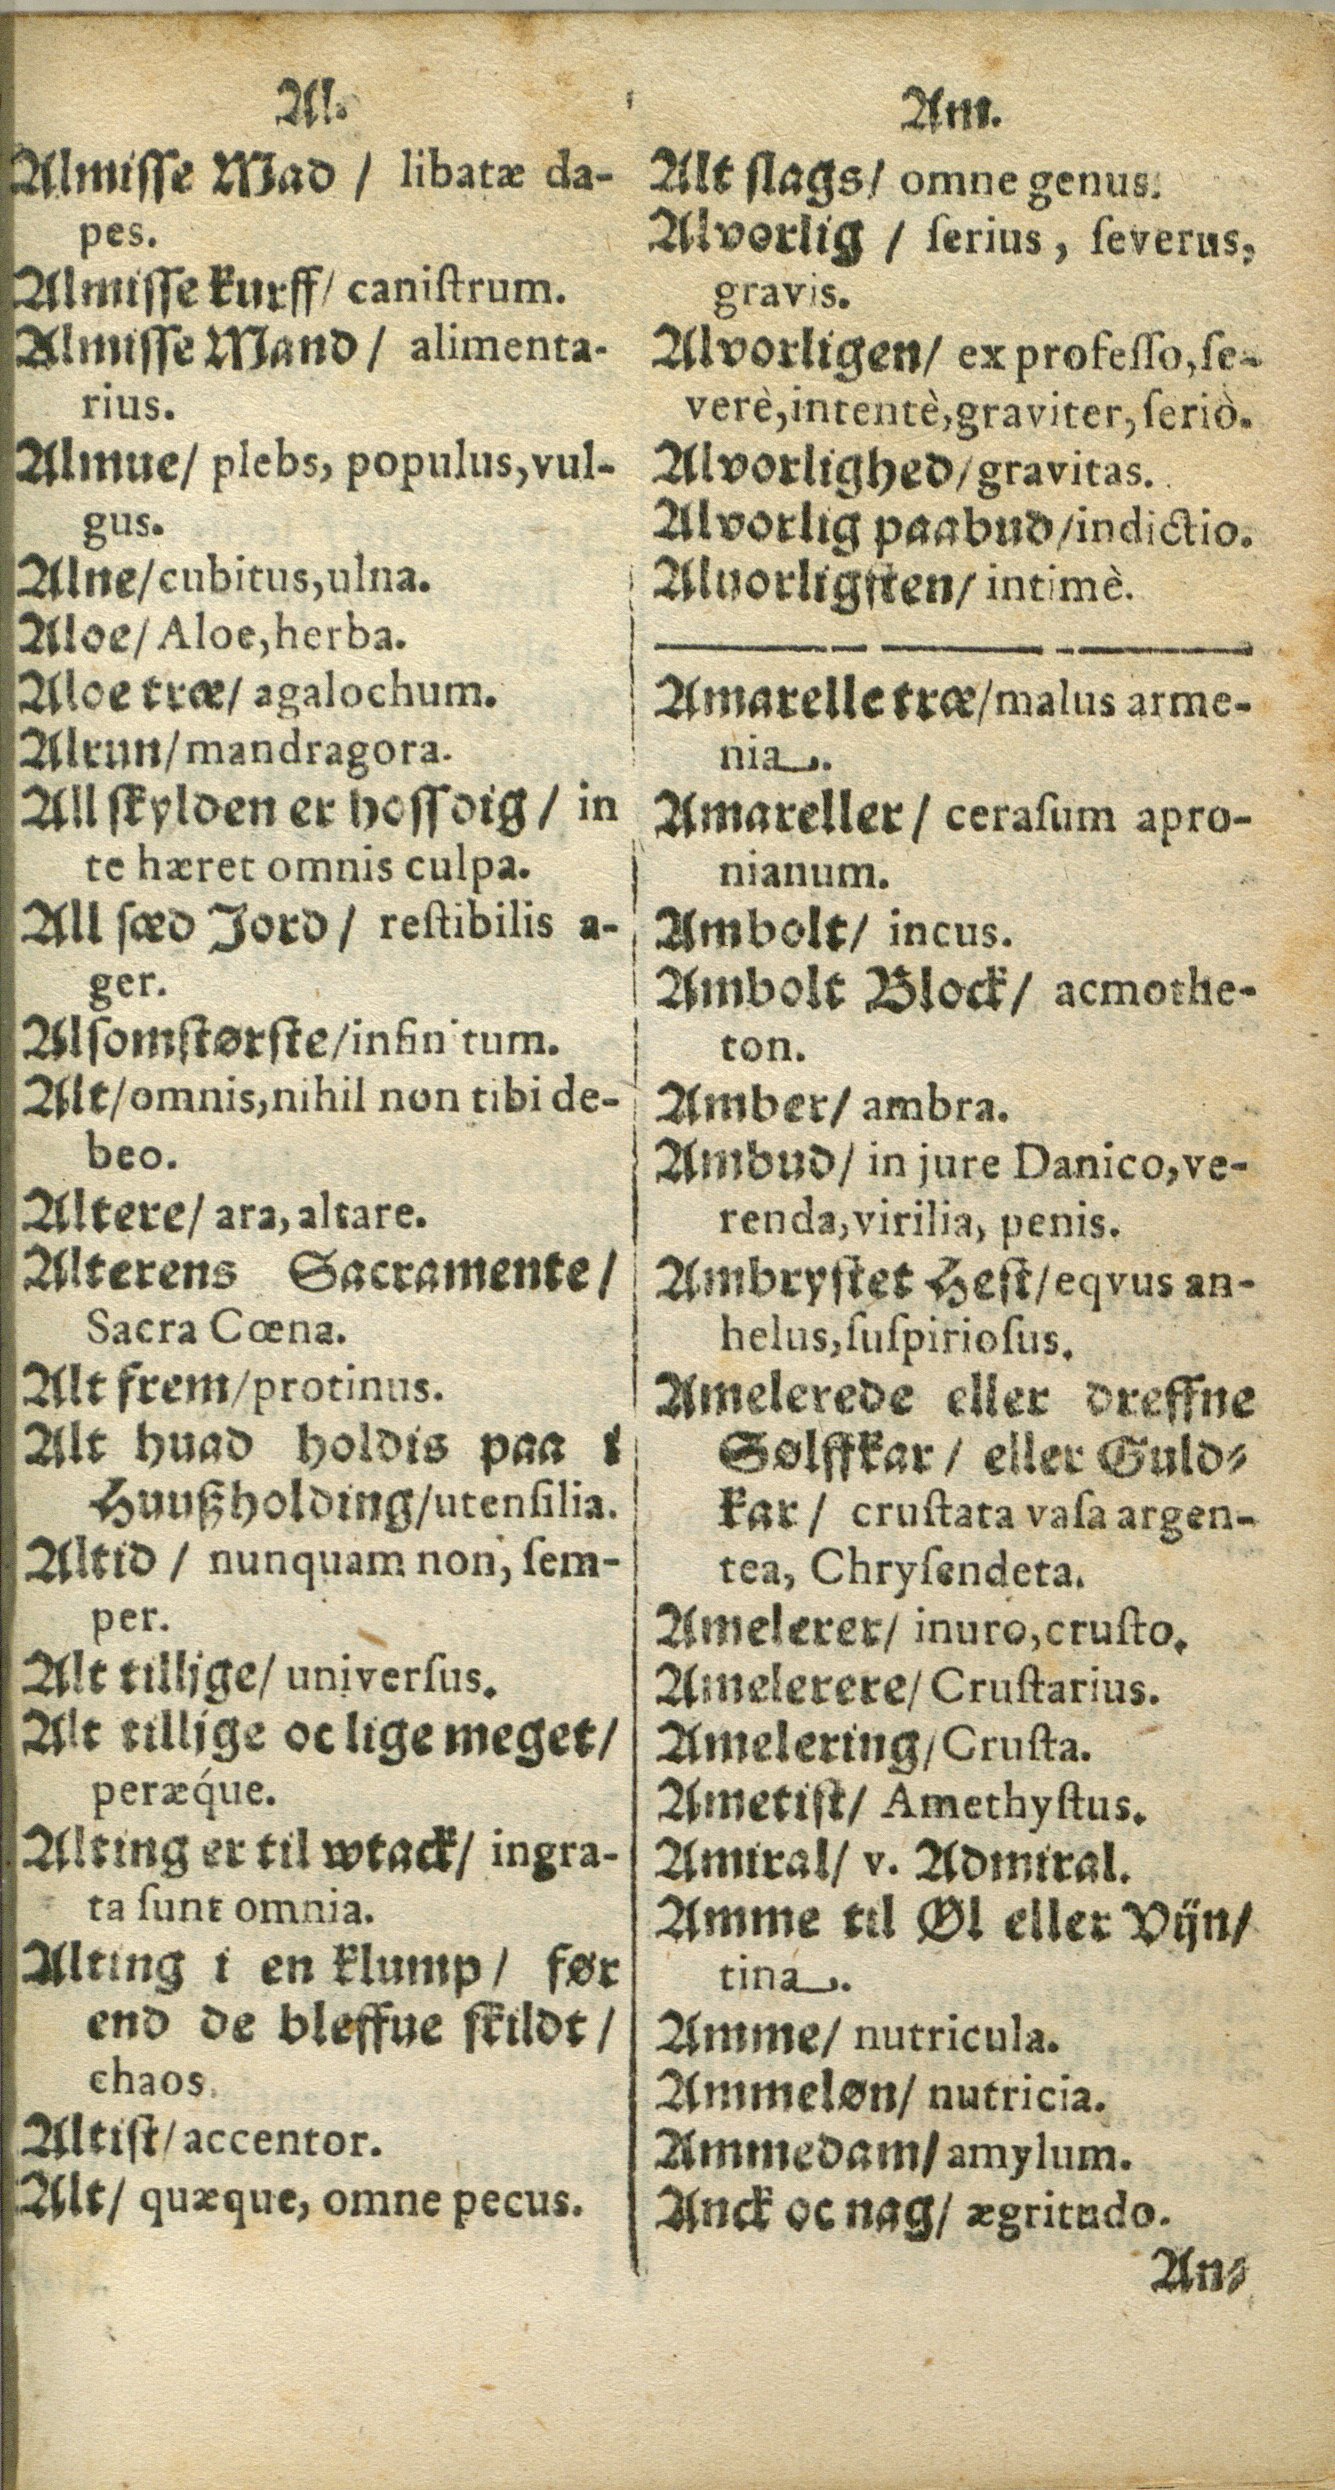 Al.
Almisse Mad / libatæ da-
pes.
Almisse kurff/ caniſtrum.
Almisse Mand / alimenta-
rius.
Almue/ plebs, populus, vul-
gus.
Alne/ cubitus, ulna.
Aloe/ Aloe, herba.
Aloe træ/ agalochum.
Alrun/ mandragora.
All ſkylden er hoſſ dig / in
te hæret omnis culpa.
All ſæd Jord / reſtibilis a-
ger.
Alſomſtørſte/ infinitum.
Alt/ omnis, nihil non tibi de-
beo.
Altere/ ara, altare.
Alterens Sacramente/
Sacra Cœna.
Alt frem/ protinus.
Alt huad holdis paa i
Huuſzholding/ utenſilia.
Altid / nunquam non, ſem-
per.
Alt tillige/ univerſus.
Alt tillige oc lige meget/
peræq́ue.
Alting er til wtack/ ingra-
ta ſunt omnia.
Alting i en klump / før
end de bleffue ſkildt /
chaos.
Altiſt/ accentor.
Alt/ quæque, omne pecus.
Am.
Alt ſlags/ omne genus.
Alvorlig / ſerius, ſeverus,
gravis.
Alvorligen/ ex profeſſo, ſe-
verè, intentè, graviter, ſeriò.
Alvorlighed/ gravitas.
Alvorlig paabud/ indictio.
Aluorligſten/ intimè.
Amarelle træ/ malus arme-
nia.
Amareller/ ceraſum apro-
nianum.
Ambolt/ incus.
Ambolt Block/ acmothe-
ton.
Amber/ ambra.
Ambud/ in jure Danico, ve-
renda, virilia, penis.
Ambryſtet Heſt/ eqvus an-
helus, ſuſpirioſus.
Amelerede eller dreffne
Sølffkar / eller Guld-
kar / cruſtata vaſa argen-
tea, Chryſendeta.
Amelerer/ inuro, cruſto.
Amelerere/ Cruſtarius.
Amelering/ Cruſta.
Ametiſt/ Amethyſtus.
Amiral/ v. Admiral.
Amme til Øl eller Vijn/
tina.
Amme/ nutricula.
Ammeløn/ nutricia.
Ammedam/ amylum.
Anck oc nag/ ægritudo.
An-